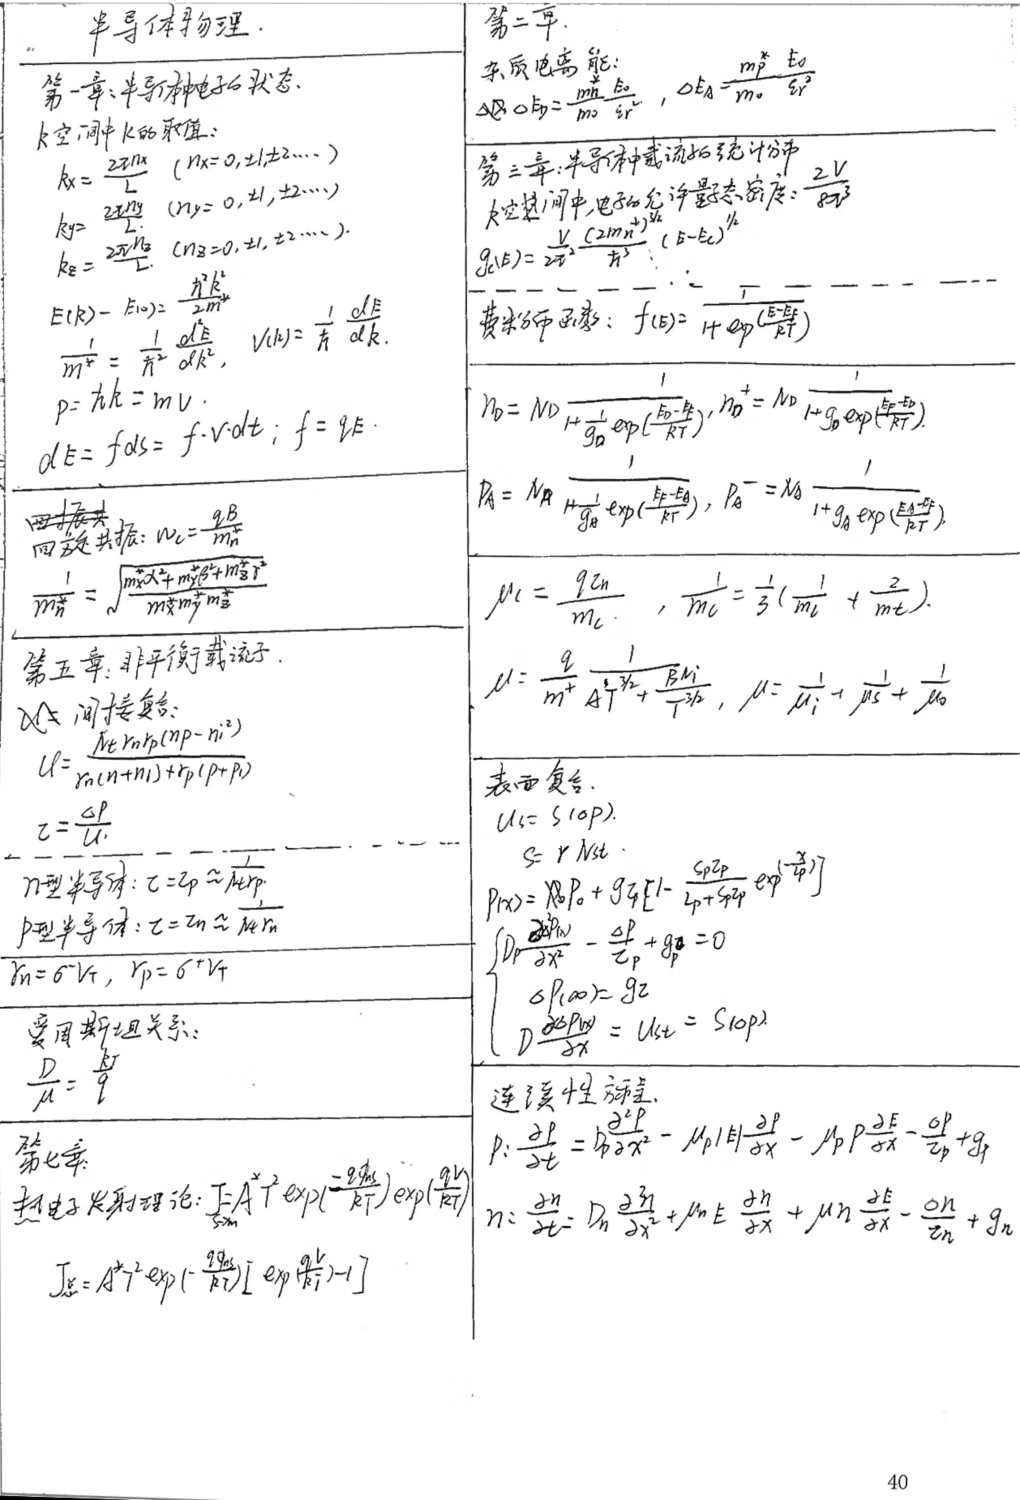 半导体物理.
第一章:半导体中电子的状态.
k空间中k的取值:
kx = 2πnx/L (nx=0,±1,±2……)
ky = 2πny/L (ny=0,±1,±2……)
kz = 2πnz/L (nz=0,±1,±2……).
E(k) - E(0) = ħ²k²/2m*
1/m* = 1/ħ² d²E/dk², V(k) = 1/ħ dE/dk.
p = ħk = mv.
dE = fds = f·v·dt; f = qE.
回旋共振: ωc = qB/mn*
1/mn* = √((mx*α²+my*β²+mz*γ²)/(mx*my*mz*))
第五章:非平衡载流子.
间接复合:
U = Nt rn rp(np-ni²)/(rn(n+n1)+rp(p+p1))
τ = Δp/U.
n型半导体: τ=τp≈1/(Nt rp)
p型半导体: τ=τn≈1/(Nt rn)
rn=σ⁻VT, rp=σ⁺VT
爱因斯坦关系:
D/μ = kT/q
第七章:
热电子发射理论: Js→m=A*T² exp(-qφns/kT) exp(qV/kT)
J总=A*T² exp(-qφns/kT)[exp(qV/kT)-1]
第二章.
杂质电离能:
ΔED = mn*/m0 E0/εr², ΔEA = mp*/m0 E0/εr²
第三章:半导体中载流子的统计分布
k空间中,电子的允许量子态密度: 2V/8π³
gc(E) = V/2π² (2mn*)^3/2/ħ³ (E-Ec)^1/2
费米分布函数: f(E) = 1/(1+exp((E-EF)/kT))
nD = ND 1/(1+1/gD exp((ED-EF)/kT)), nD⁺ = ND 1/(1+gD exp((EF-ED)/kT)).
PA = NA 1/(1+1/gA exp((EF-EA)/kT)), PA⁻ = NA 1/(1+gA exp((EA-EF)/kT)).
μc = qτn/mc, 1/mc = 1/3(1/ml + 2/mt).
μ = q/m* 1/(AT^3/2 + BNi/T^3/2), μ = 1/μi + 1/μs + 1/μo
表面复合.
Us = S(Δp).
S = r Nst.
P(x) = P0 + gτp[1 - Spτp/(Lp+Spτp) exp(-x/Lp)]
Dp ∂²ΔP(x)/∂x² - Δp/τp + gp = 0
ΔP(∞) = gτ
D ∂ΔP(x)/∂x = Ust = S(Δp)
连续性方程.
P: ∂p/∂t = Dp ∂²p/∂x² - μp|E|∂p/∂x - μp p ∂E/∂x - Δp/τp + gp
n: ∂n/∂t = Dn ∂²n/∂x² + μn E ∂n/∂x + μn ∂E/∂x - Δn/τn + gn
40